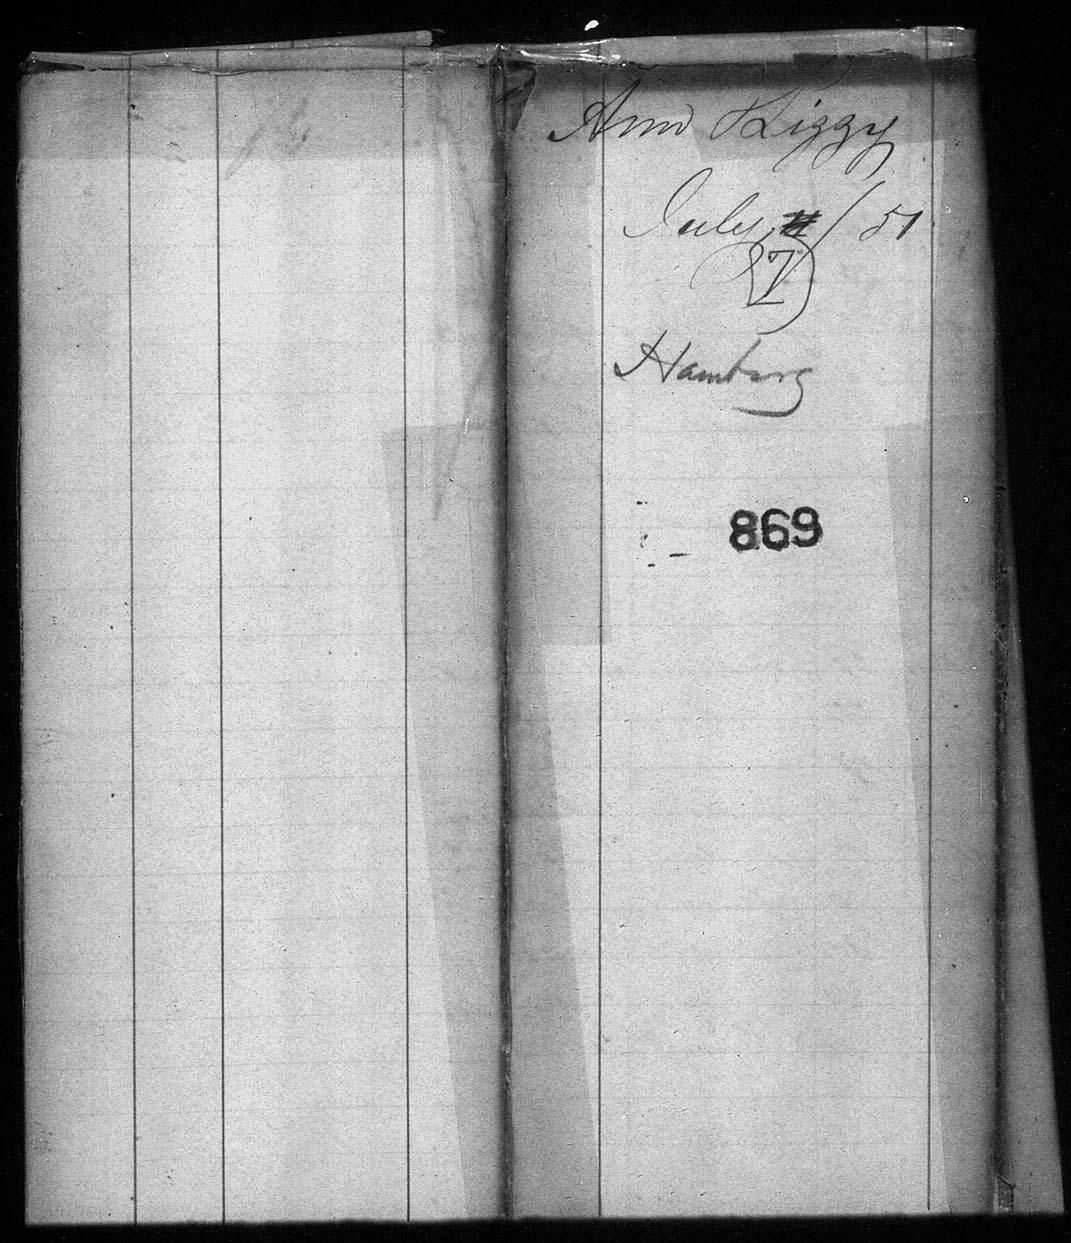 Ann Lizzy
July / 51
27
Hamburg
869